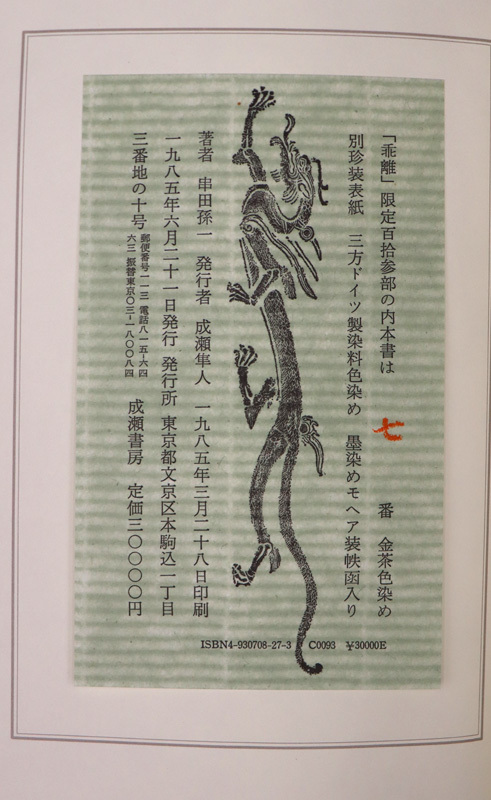 「乖離」限定百拾参部の内本書は 七 番 金茶色染め
別珍装表紙 三方ドイツ製染料色染め 墨染めモヘア装帙函入り
著者 串田孫一 発行者 成瀬隼人 一九八五年三月二十八日印刷
一九八五年六月二十一日発行 発行所 東京都文京区本駒込一丁目
三番地の十号 郵便番号一一三 電話八一五-六四
六三 振替東京〇三-一八〇〇八四 成瀬書房 定価三〇〇〇〇円
ISBN4-930708-27-3 C0093 ¥30000E